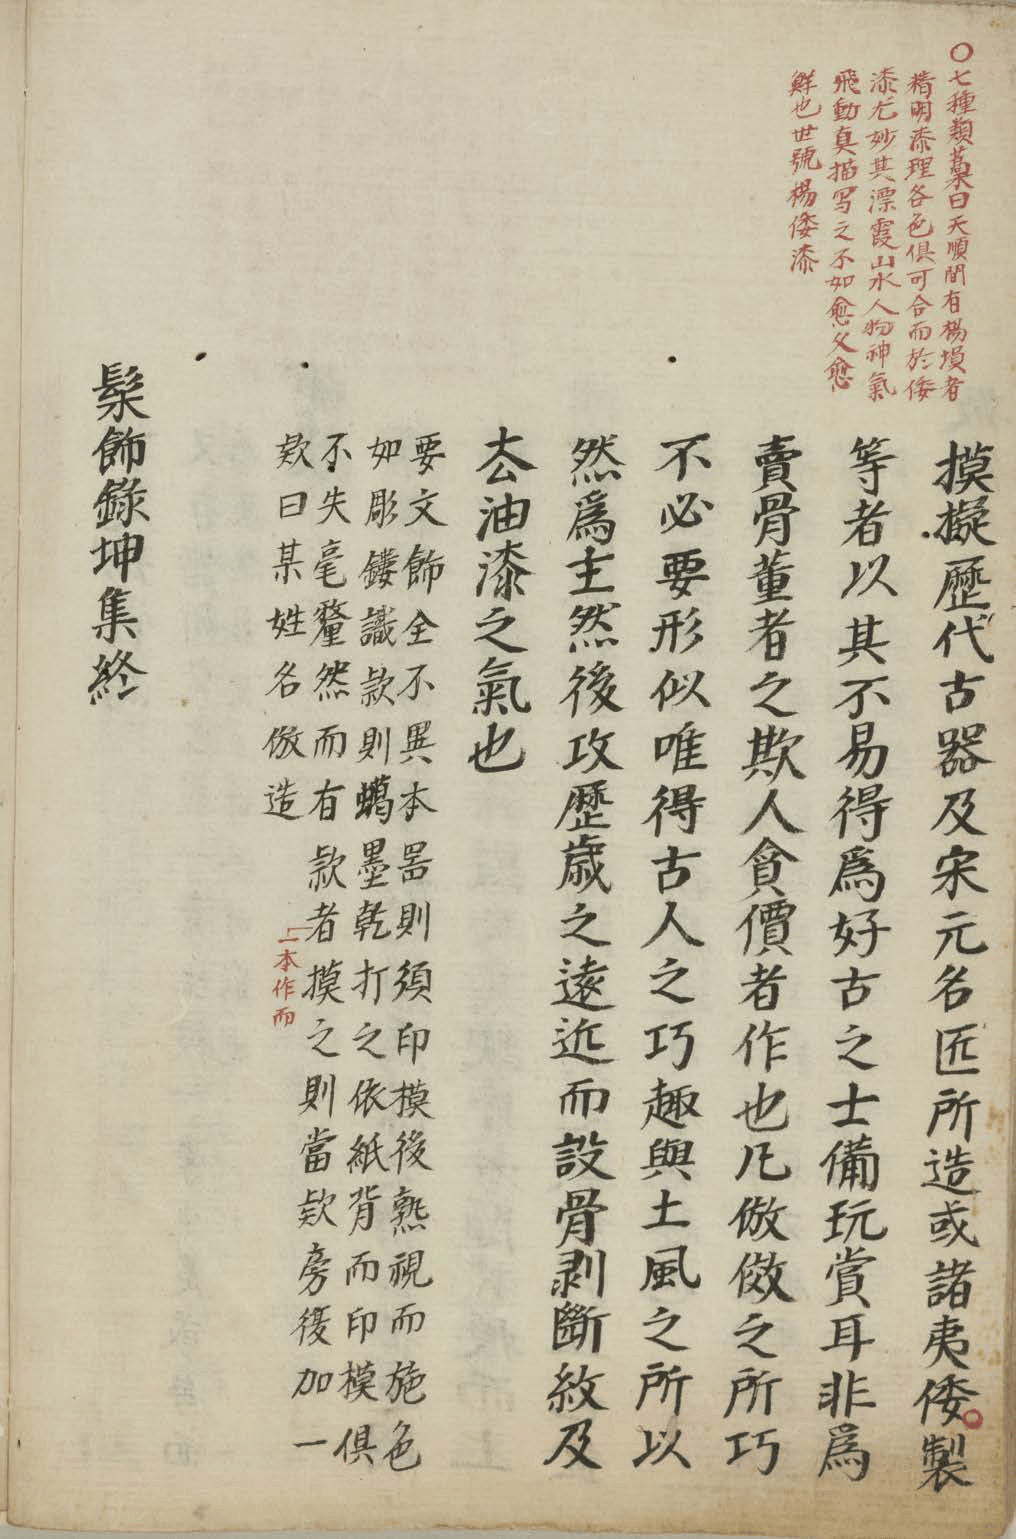 〇七種類藁曰天順間有楊塤者
精明漆理各色俱可合而於倭
漆尤妙其漂霞山水人物神氣
飛動真描写之不如愈久愈
鮮也世號楊倭漆
摸擬歷代古器及宋元名匠所造或諸夷倭製
等者以其不易得爲好古之士備玩賞耳非爲
賣骨董者之欺人貪價者作也凡倣傚之所巧
不必要形似唯得古人之巧趣與土風之所以
然爲主然後攻歷歲之遠近而設骨剥斷紋及
去油漆之氣也
要文飾全不異本器則須印模後熟視而施色
如彫鏤識款則蠟墨乾打之依紙背而印模俱
不失毫釐然而有款者摸之則當款旁復加一
款曰某姓名倣造
一本作而
髹飾錄坤集終